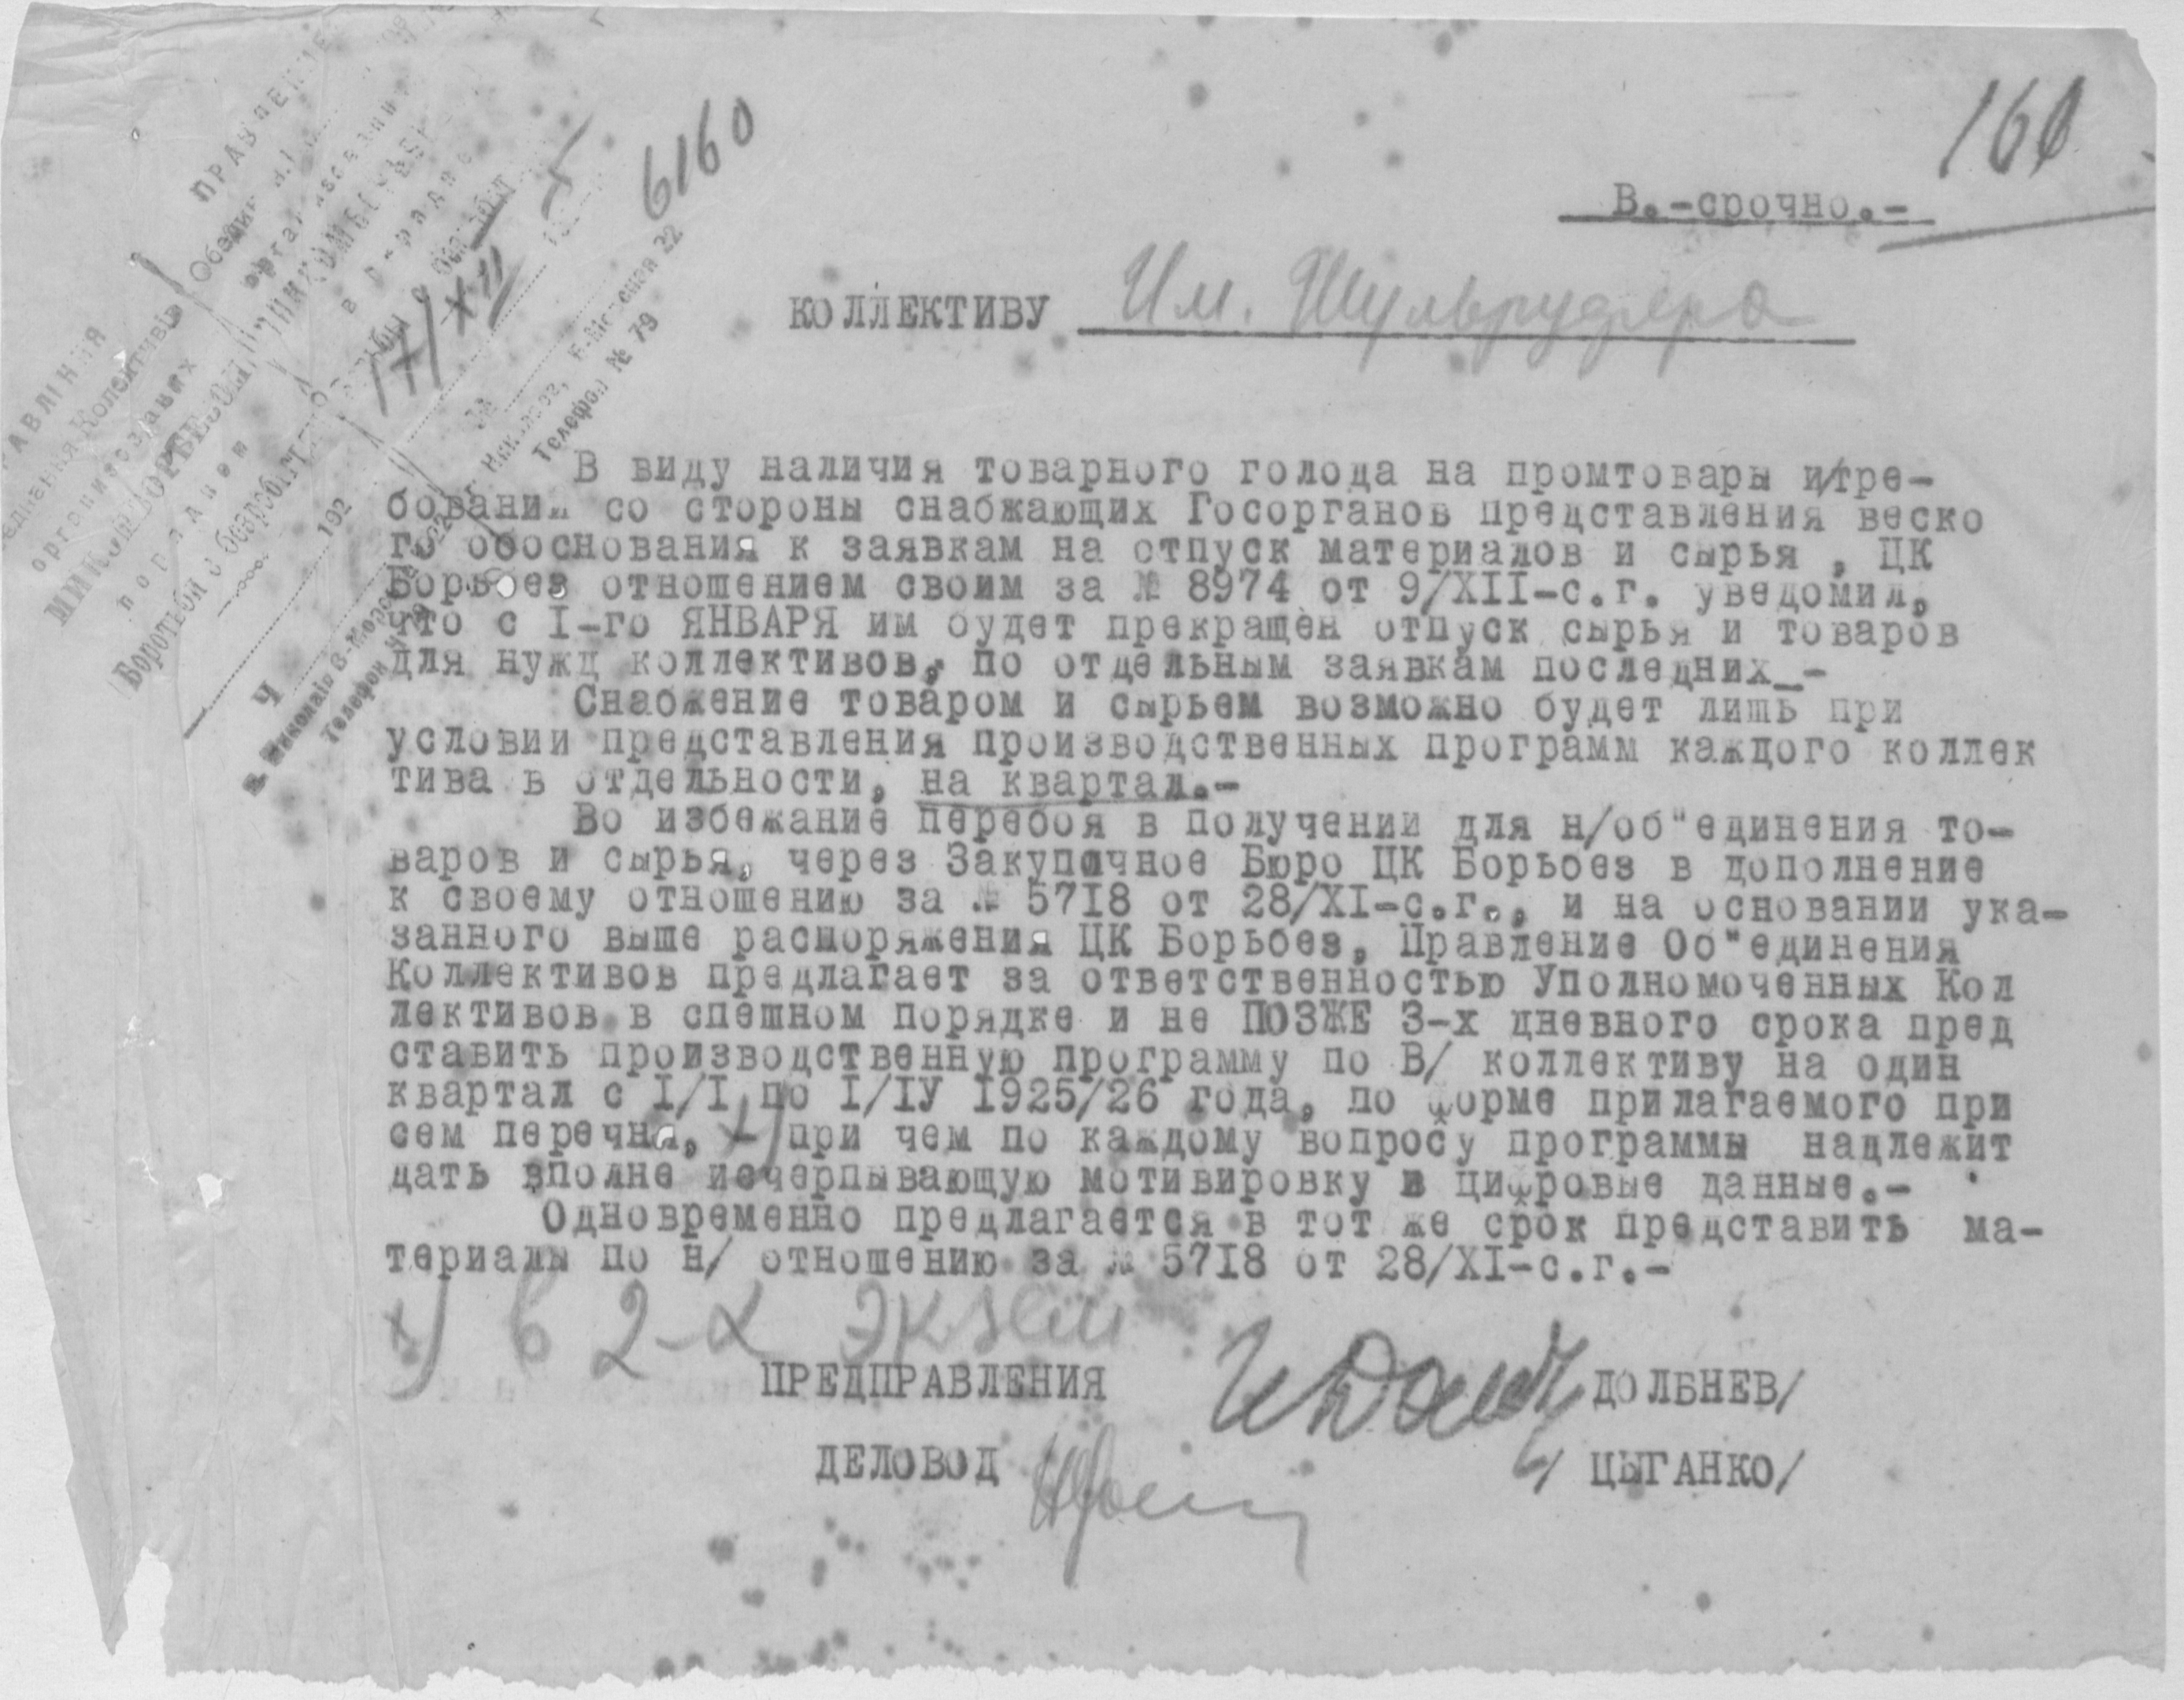 160
В.-срочно.-
6160
17/XII
КОЛЛЕКТИВУ Им.
Телефон № 79
В виду наличия товарного голода на промтовары и/тре-
бований со стороны снабжающих Госорганов представления веско
го обоснования к заявкам на отпуск материалов и сырья , ЦК
Борьбез отношением своим за № 8974 от 9/XII-с.г. уведомил,
что с I-го ЯНВАРЯ им будет прекращен отпуск сырья и товаров
для нужд коллективов, по отдельным заявкам последних_-
Снабжение товаром и сырьем возможно будет лишь при
условии представления производственных программ каждого коллек
тива в отдельности, на квартал.-
Во избежание перебоя в получении для н/об"единения то-
варов и сырья, через Закупочное Бюро ЦК Борьбез в дополнение
к своему отношению за № 5718 от 28/XI-с.г., и на основании ука-
занного выше распоряжения ЦК Борьбез, Правление Об"единения
Коллективов предлагает за ответственностью Уполномоченных Кол
лективов в спешном порядке и не ПОЗЖЕ 3-х дневного срока пред
ставить производственную программу по В/ коллективу на один
квартал с I/I по I/IУ 1925/26 года, по форме прилагаемого при
сем перечня, х) при чем по каждому вопросу программы надлежит
дать вполне исчерпывающую мотивировку и цифровые данные.-
Одновременно предлагается в тот же срок представить ма-
териалы по н/ отношению за № 5718 от 28/XI-с.г.-
х) в 2-х экзем
ПРЕДПРАВЛЕНИЯ ДОЛБНЕВ/
ДЕЛОВОД / ЦЫГАНКО/